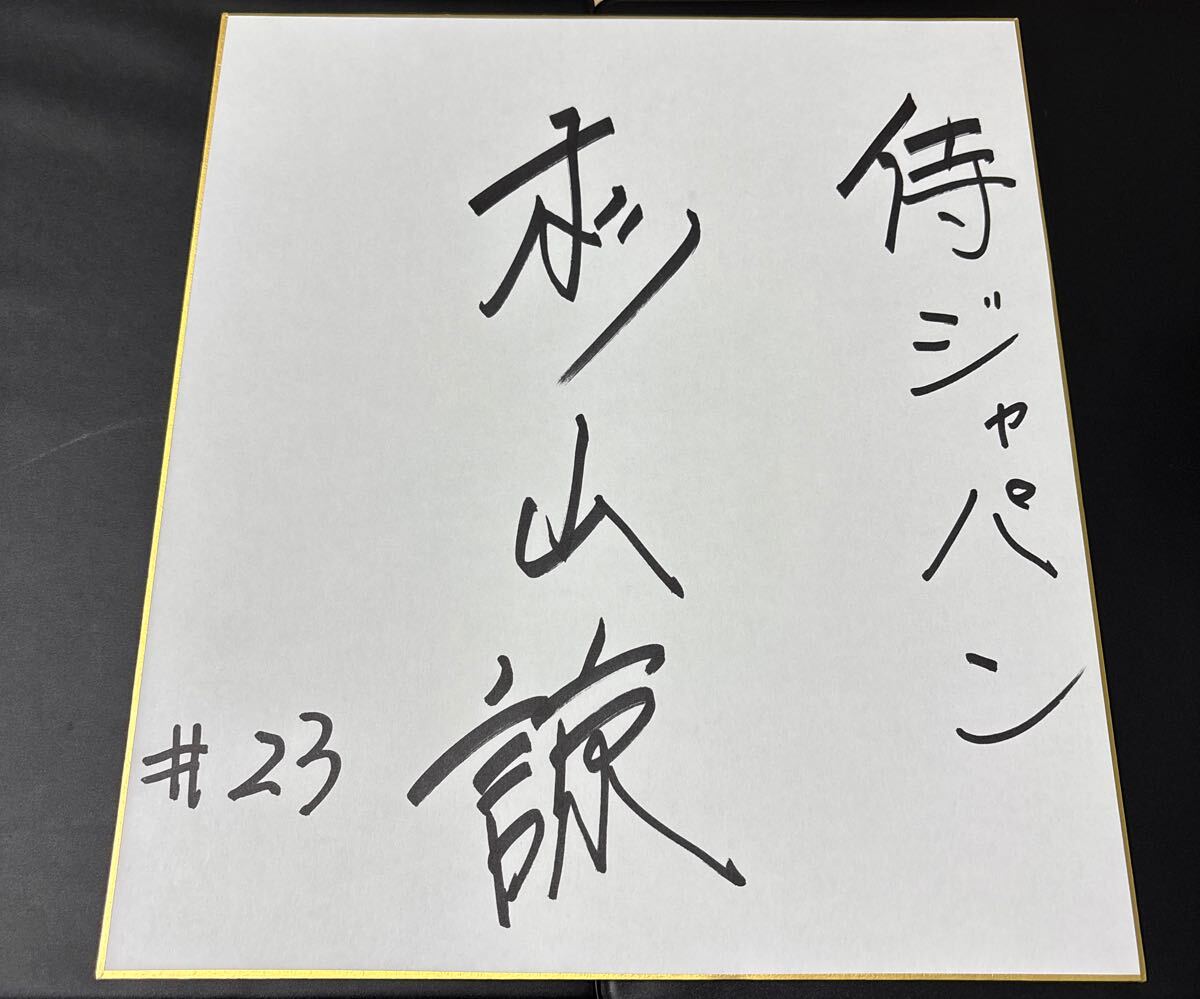 侍ジャパン
杉山諒
#23